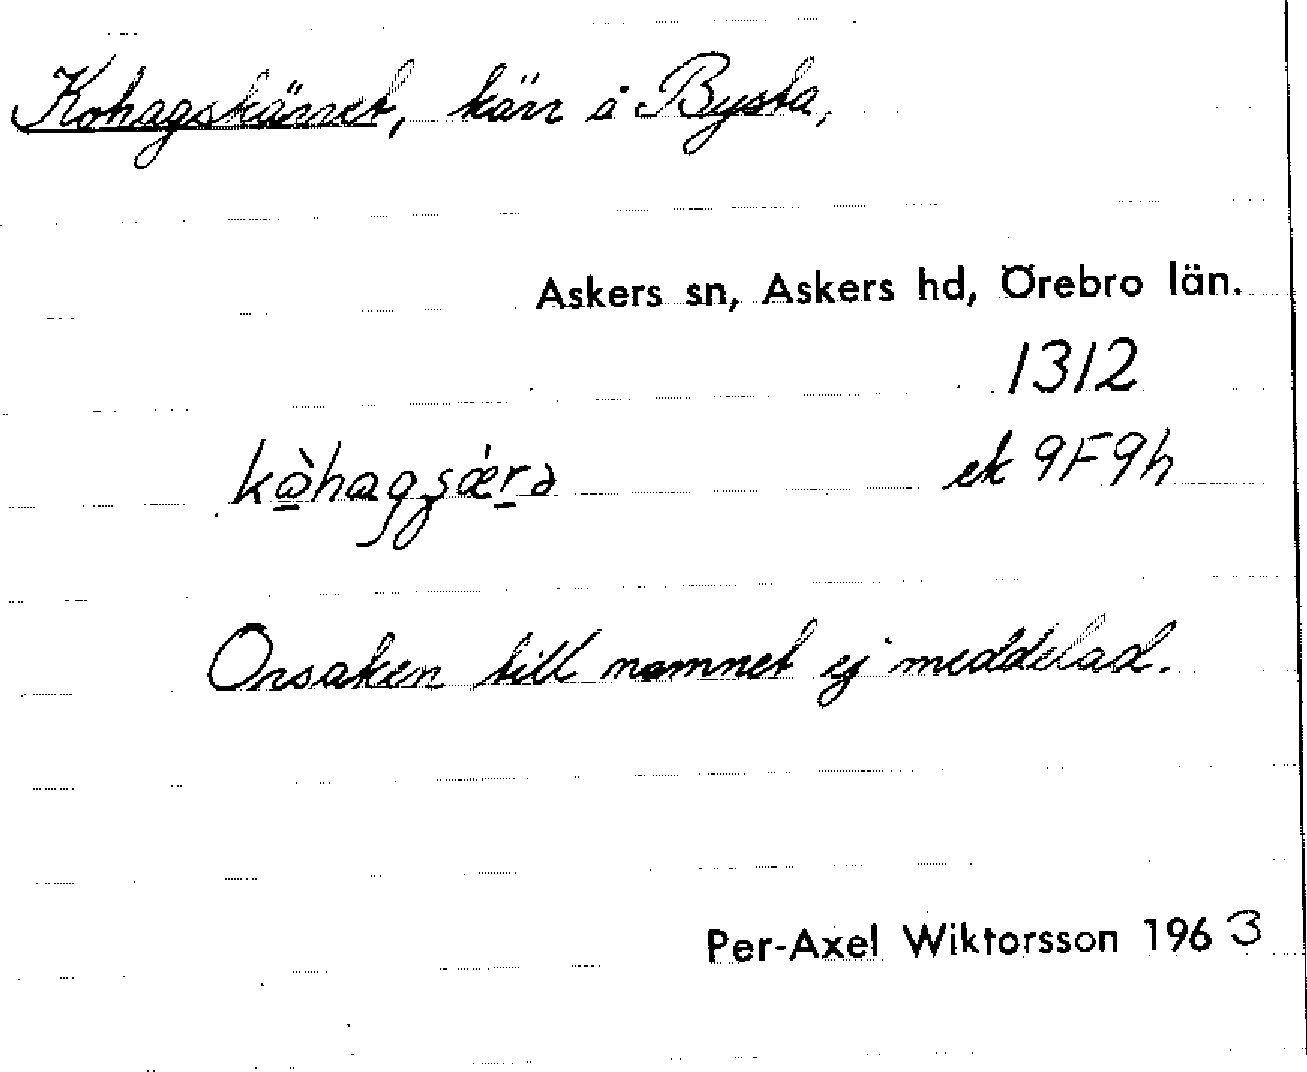 Kohagskärret, kärr å Bysta,
Askers sn, Askers hd, Örebro län.
1312
ek 9F9h
Orsaken till namnet ej meddelad.
Per-Axel Wiktorsson 1963